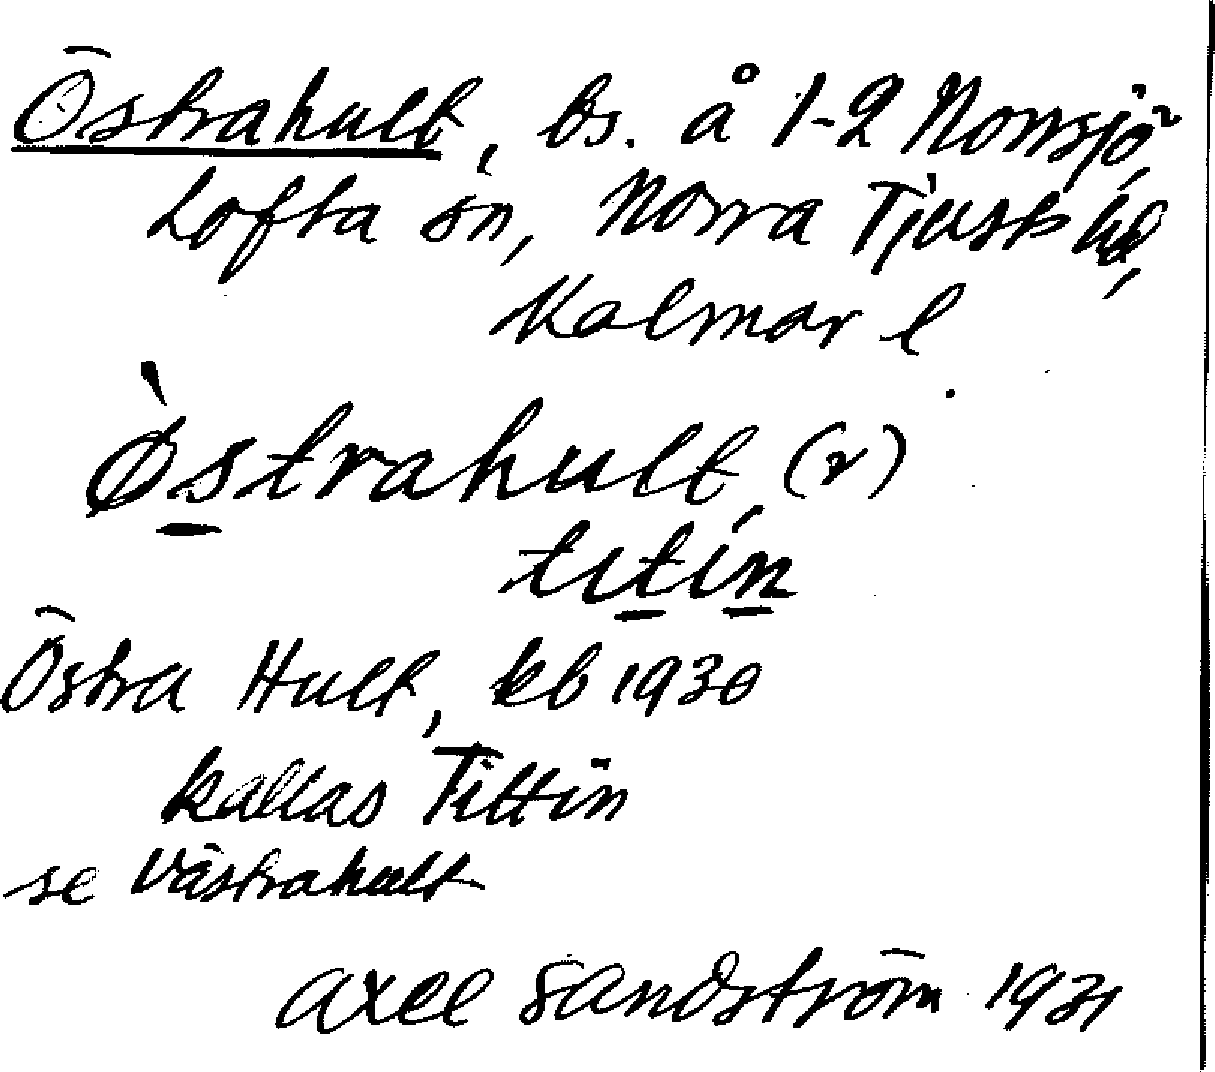 Östrahult, bs. å 1-2 Norrsjö,
Lofta sn, Norra Tjust hd,
Kalmar l
Ø̀strahult (r)
titín
Östra Hult, kb 1930
kallas Tittin
se Västrahult
Axel Sandström 1931